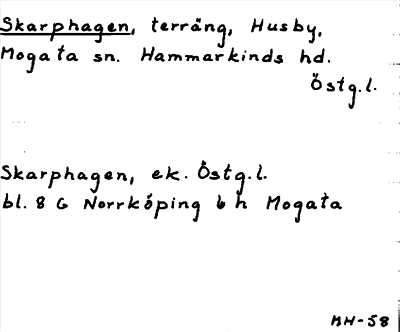 Skarphagen, terräng, Husby,
Mogata sn. Hammarkinds hd.
Östg.l.
Skarphagen, ek. Östg.l.
bl. 8 G Norrköping b h Mogata
NH-58